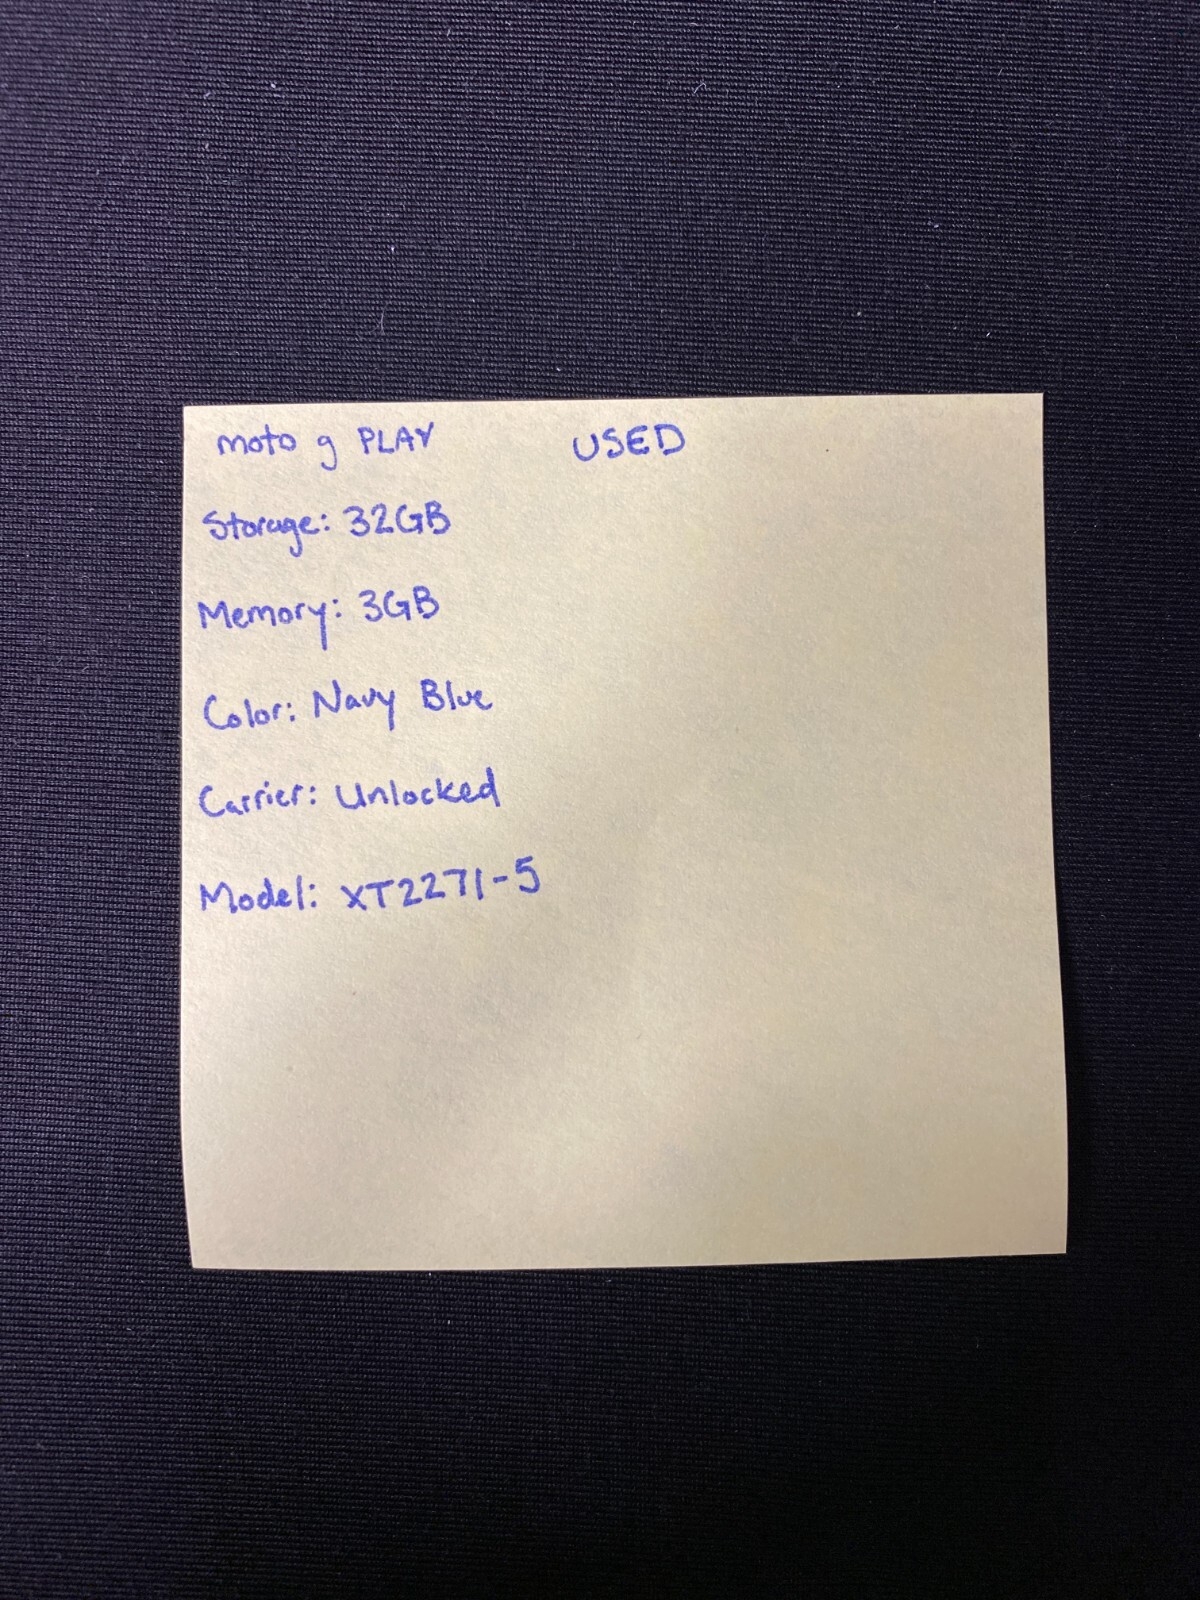 moto g PLAY USED
Storage: 32GB
Memory: 3GB
Color: Navy Blue
Carrier: Unlocked
Model: XT2271-5